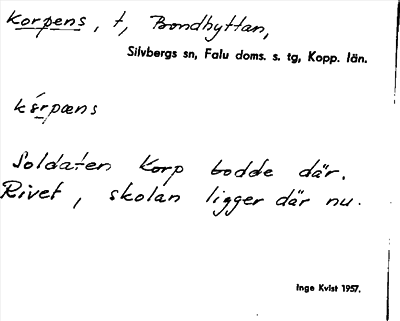 Korpens, t, Bondhyttan,
Silvbergs sn, Falu doms. s. tg, Kopp. län.
kórpæns
Soldaten Korp bodde där.
Rivet, skolan ligger där nu.
Inge Kvist 1957.